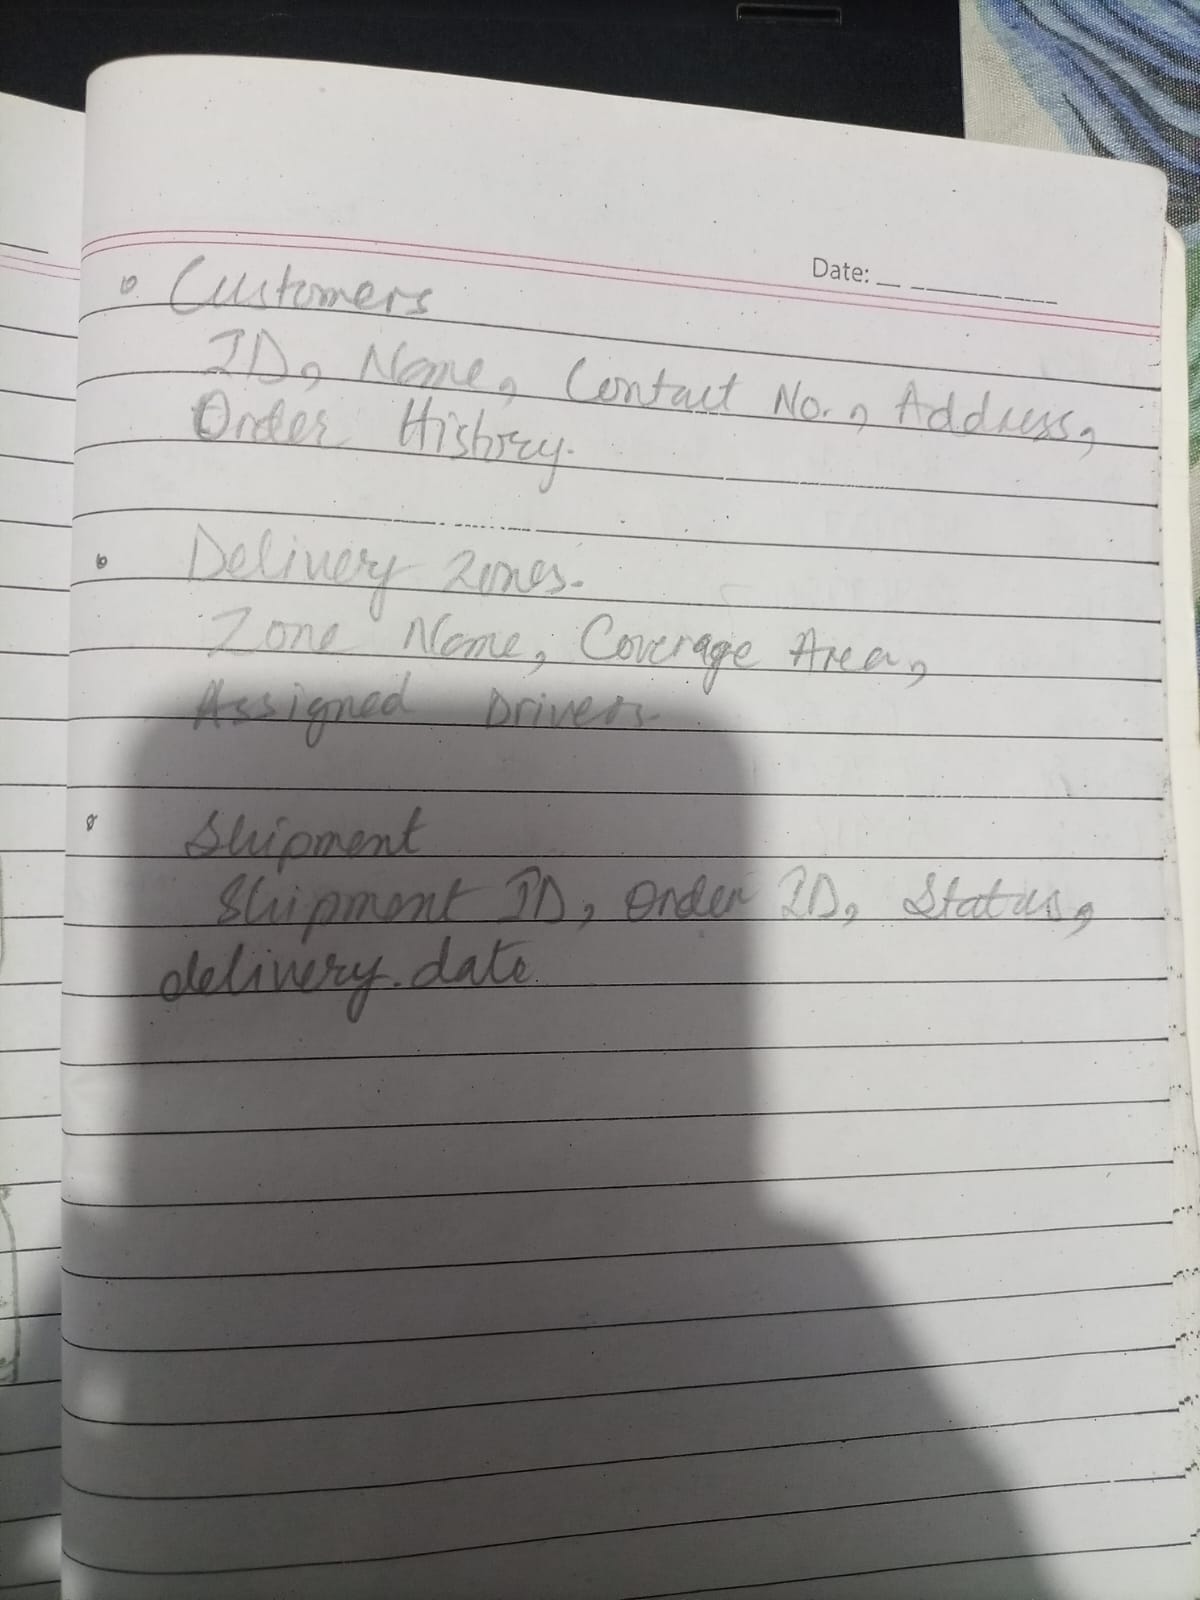 Date:
Customers
ID, Name, Contact No., Address,
Order History.
Delivery Zones.
Zone Name, Coverage Area,
Assigned Drivers.
Shipment
Shipment ID, Order ID, Status,
delivery date.